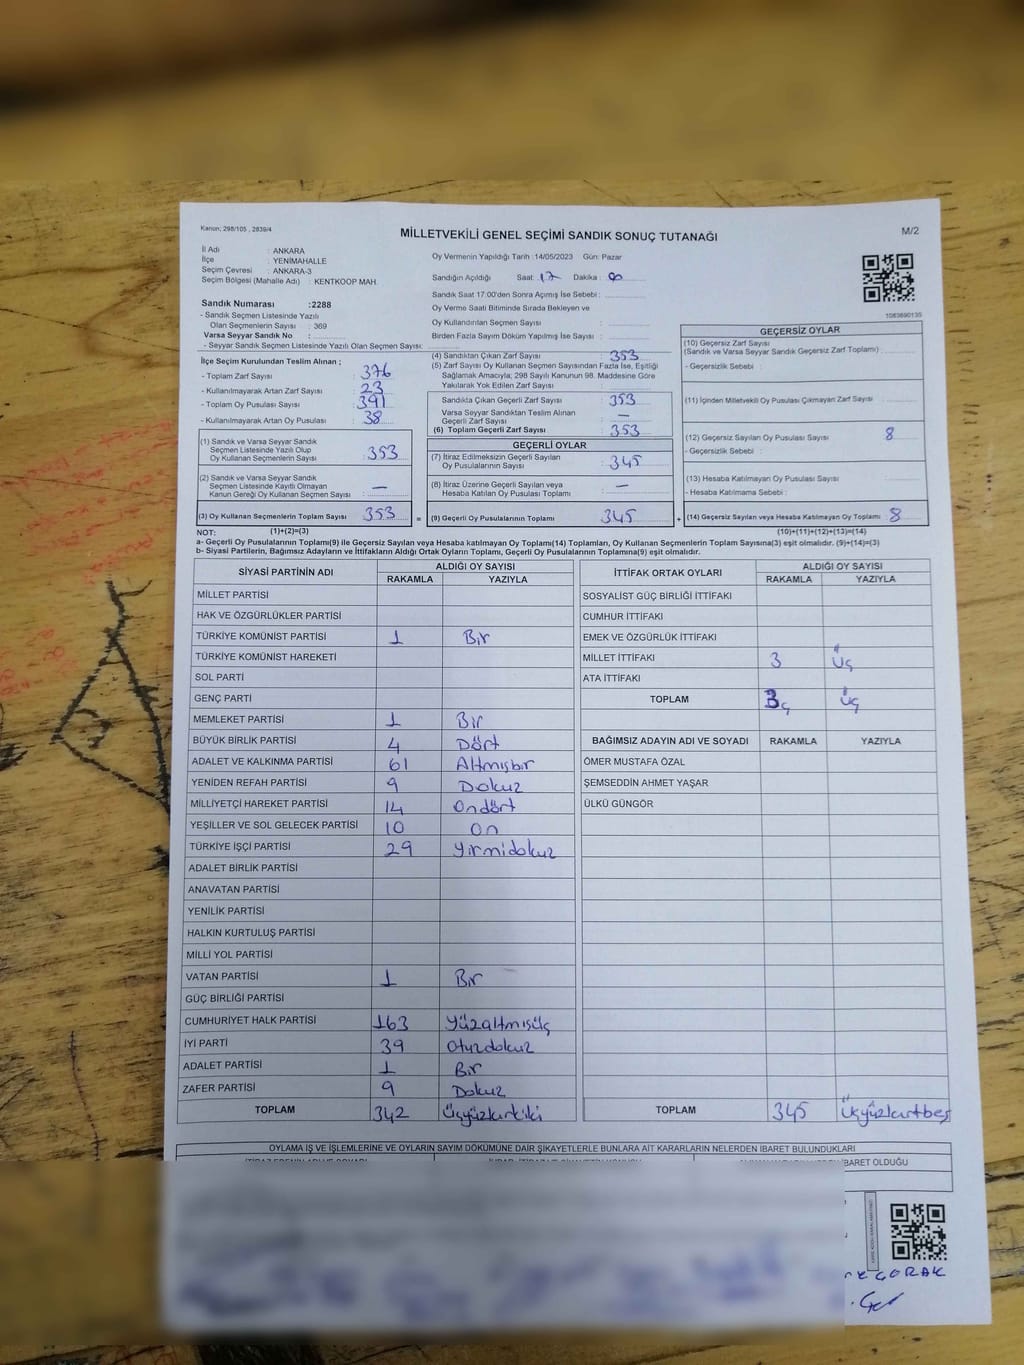 Kanun; 298/105 , 2839/4
MİLLETVEKİLİ GENEL SEÇİMİ SANDIK SONUÇ TUTANAĞI
M/2
İl Adı : ANKARA
İlçe : YENİMAHALLE
Seçim Çevresi : ANKARA-3
Seçim Bölgesi (Mahalle Adı) : KENTKOOP MAH.
Sandık Numarası :2288
- Sandık Seçmen Listesinde Yazılı
Olan Seçmenlerin Sayısı : 369
Varsa Seyyar Sandık No :
- Seyyar Sandık Seçmen Listesinde Yazılı Olan Seçmen Sayısı:
Oy Vermenin Yapıldığı Tarih :14/05/2023 Gün: Pazar
Sandığın Açıldığı Saat: 17 Dakika: 00
Sandık Saat 17:00'den Sonra Açımış İse Sebebi :
Oy Verme Saati Bitiminde Sırada Bekleyen ve
Oy Kullandırılan Seçmen Sayısı :
Birden Fazla Sayım Döküm Yapılmış İse Sayısı :
1083690135
İlçe Seçim Kurulundan Teslim Alınan ;
- Toplam Zarf Sayısı : 376
- Kullanılmayarak Artan Zarf Sayısı : 23
- Toplam Oy Pusulası Sayısı : 391
- Kullanılmayarak Artan Oy Pusulası : 38
(1) Sandık ve Varsa Seyyar Sandık
Seçmen Listesinde Yazılı Olup
Oy Kullanan Seçmenlerin Sayısı : 353
(2) Sandık ve Varsa Seyyar Sandık
Seçmen Listesinde Kayıtlı Olmayan
Kanun Gereği Oy Kullanan Seçmen Sayısı : —
(3) Oy Kullanan Seçmenlerin Toplam Sayısı : 353
(4) Sandıktan Çıkan Zarf Sayısı : 353
(5) Zarf Sayısı Oy Kullanan Seçmen Sayısından Fazla İse, Eşitliği
Sağlamak Amacıyla; 298 Sayılı Kanunun 98. Maddesine Göre
Yakılarak Yok Edilen Zarf Sayısı :
Sandıkta Çıkan Geçerli Zarf Sayısı : 353
Varsa Seyyar Sandıktan Teslim Alınan
Geçerli Zarf Sayısı : —
(6) Toplam Geçerli Zarf Sayısı : 353
GEÇERLİ OYLAR
(7) İtiraz Edilmeksizin Geçerli Sayılan
Oy Pusulalarının Sayısı : 345
(8) İtiraz Üzerine Geçerli Sayılan veya
Hesaba Katılan Oy Pusulası Toplamı : —
= (9) Geçerli Oy Pusulalarının Toplamı : 345
GEÇERSİZ OYLAR
(10) Geçersiz Zarf Sayısı
(Sandık ve Varsa Seyyar Sandık Geçersiz Zarf Toplamı) :
- Geçersizlik Sebebi :
(11) İçinden Milletvekili Oy Pusulası Çıkmayan Zarf Sayısı :
(12) Geçersiz Sayılan Oy Pusulası Sayısı : 8
- Geçersizlik Sebebi :
(13) Hesaba Katılmayan Oy Pusulası Sayısı :
- Hesaba Katılmama Sebebi :
+ (14) Geçersiz Sayılan veya Hesaba Katılmayan Oy Toplamı : 8
NOT: (1)+(2)=(3) (10)+(11)+(12)+(13)=(14)
a- Geçerli Oy Pusulalarının Toplamı(9) ile Geçersiz Sayılan veya Hesaba katılmayan Oy Toplamı(14) Toplamları, Oy Kullanan Seçmenlerin Toplam Sayısına(3) eşit olmalıdır. (9)+(14)=(3)
b- Siyasi Partilerin, Bağımsız Adayların ve İttifakların Aldığı Ortak Oyların Toplamı, Geçerli Oy Pusulalarının Toplamına(9) eşit olmalıdır.
SİYASİ PARTİNİN ADI ALDIĞI OY SAYISI
RAKAMLA YAZIYLA
MİLLET PARTİSİ
HAK VE ÖZGÜRLÜKLER PARTİSİ
TÜRKİYE KOMÜNİST PARTİSİ 1 Bir
TÜRKİYE KOMÜNİST HAREKETİ
SOL PARTİ
GENÇ PARTİ
MEMLEKET PARTİSİ 1 Bir
BÜYÜK BİRLİK PARTİSİ 4 Dört
ADALET VE KALKINMA PARTİSİ 61 Altmışbir
YENİDEN REFAH PARTİSİ 9 Dokuz
MİLLİYETÇİ HAREKET PARTİSİ 14 Ondört
YEŞİLLER VE SOL GELECEK PARTİSİ 10 On
TÜRKİYE İŞÇİ PARTİSİ 29 Yirmidokuz
ADALET BİRLİK PARTİSİ
ANAVATAN PARTİSİ
YENİLİK PARTİSİ
HALKIN KURTULUŞ PARTİSİ
MİLLİ YOL PARTİSİ
VATAN PARTİSİ 1 Bir
GÜÇ BİRLİĞİ PARTİSİ
CUMHURİYET HALK PARTİSİ 163 Yüzaltmışüç
İYİ PARTİ 39 Otuzdokuz
ADALET PARTİSİ 1 Bir
ZAFER PARTİSİ 9 Dokuz
TOPLAM 342 Üçyüzkırkiki
İTTİFAK ORTAK OYLARI ALDIĞI OY SAYISI
RAKAMLA YAZIYLA
SOSYALİST GÜÇ BİRLİĞİ İTTİFAKI
CUMHUR İTTİFAKI
EMEK VE ÖZGÜRLÜK İTTİFAKI
MİLLET İTTİFAKI 3 Üç
ATA İTTİFAKI
TOPLAM 3 üç
BAĞIMSIZ ADAYIN ADI VE SOYADI RAKAMLA YAZIYLA
ÖMER MUSTAFA ÖZAL
ŞEMSEDDİN AHMET YAŞAR
ÜLKÜ GÜNGÖR
TOPLAM 345 Üçyüzkırtbeş
OYLAMA İŞ VE İŞLEMLERİNE VE OYLARIN SAYIM DÖKÜMÜNE DAİR ŞİKAYETLERLE BUNLARA AİT KARARLARIN NELERDEN İBARET BULUNDUKLARI
İBARET OLDUĞU